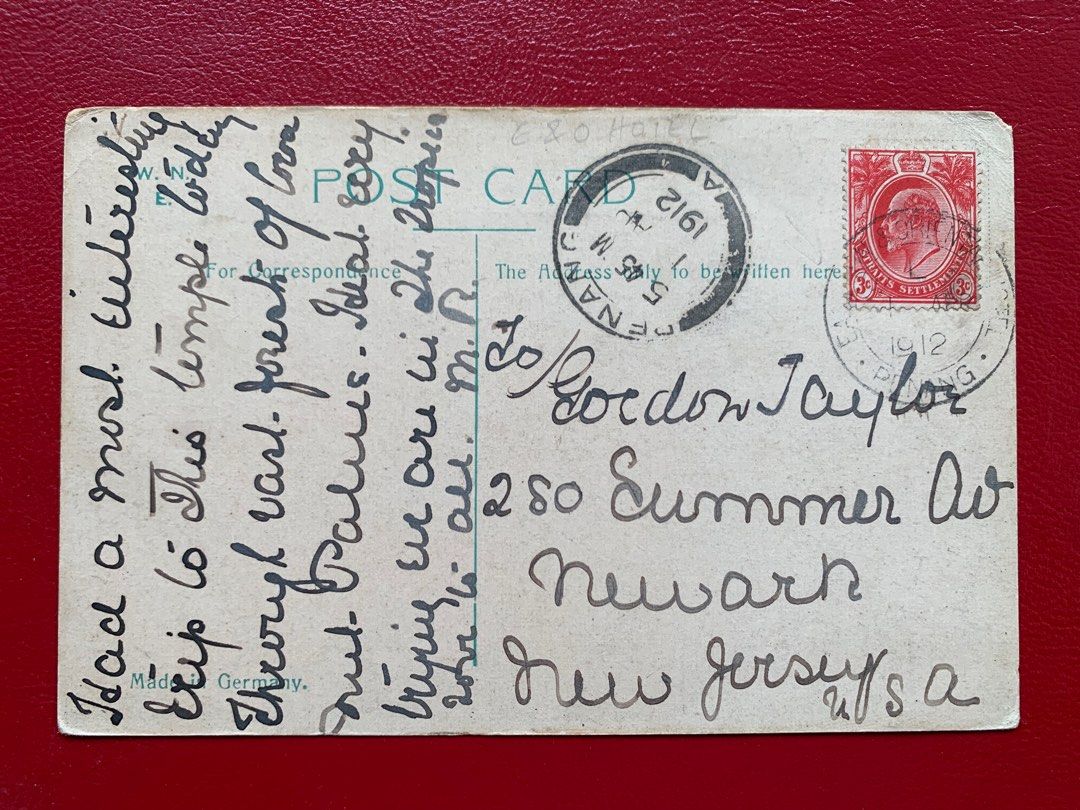 E & O HOTEL
W. N.
E.
POST CARD
For Correspondence
The Address only to be written here
Had a most interesting
trip to this temple today
Through vast forest of Coca
nut Palms. Heat very
trying we are in the tropics
love to all. M. R.
To/
Gordon Taylor
280 Summer Av
Newark
New Jersey
U S A
Made in Germany.
PENANG
5 45 M
1
1912
STRAITS SETTLEMENTS
3c 3c
1912
PENANG